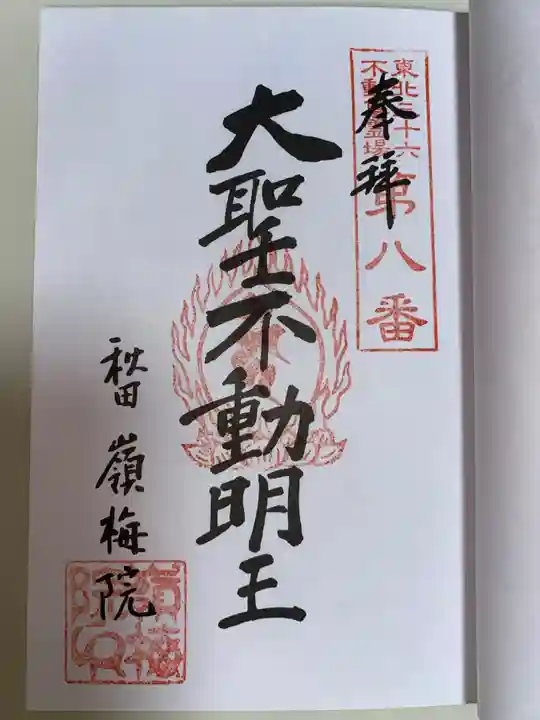 東北三十六
不動霊場
第八番
奉拝
大聖不動明王
秋田
嶺梅院